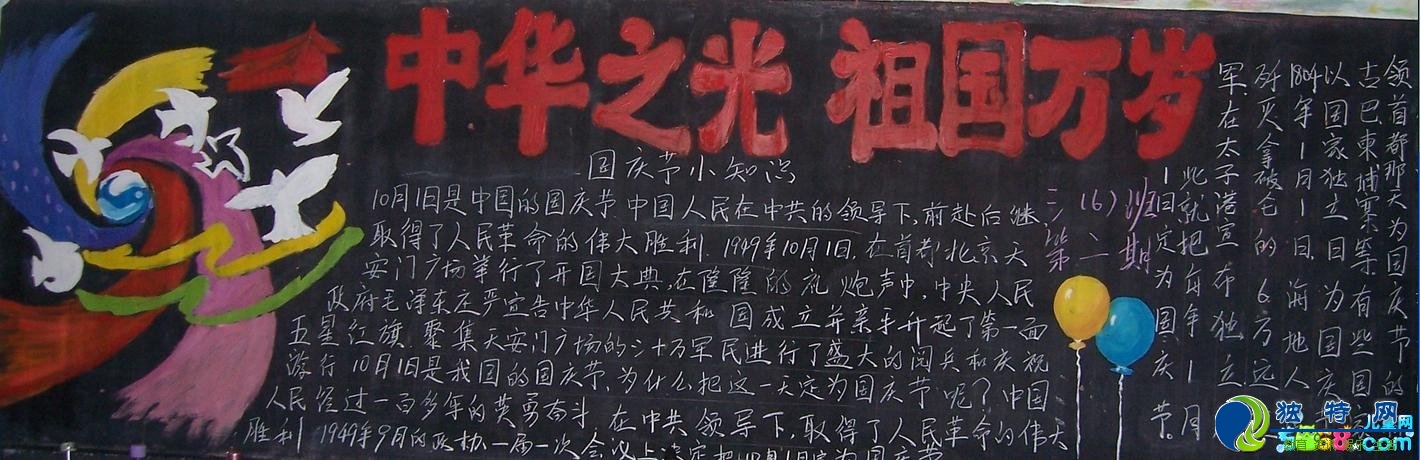 中华之光 祖国万岁
国庆节小知识
三(6)班
第二期
10月1日是中国的国庆节 中国人民在中共的领导下,前赴后继,
取得了人民革命的伟大胜利. 1949年10月1日,在首都北京天
安门广场举行了开国大典,在隆隆的礼炮声中,中央人民
政府毛泽东庄严宣告中华人民共和国成立并亲手升起了第一面
五星红旗 聚集天安门广场的三十万军民进行了盛大的阅兵和庆祝
游行 10月1日是我国的国庆节,为什么把这一天定为国庆节呢?中国
人民经过一百多年的英勇奋斗 在中共领导下,取得了人民革命的伟大
胜利 1949年9月的政协一届一次会议上决定把10月1日定为国庆节
领首都那天为国庆节的
古巴柬埔寨等有些国家
以国家独立日为国庆
1804年1月1日,海地人
歼灭拿破仑的6万远
军在太子港宣布独立.
此就把每年1月
1日定为国庆节。
独特网
儿童网